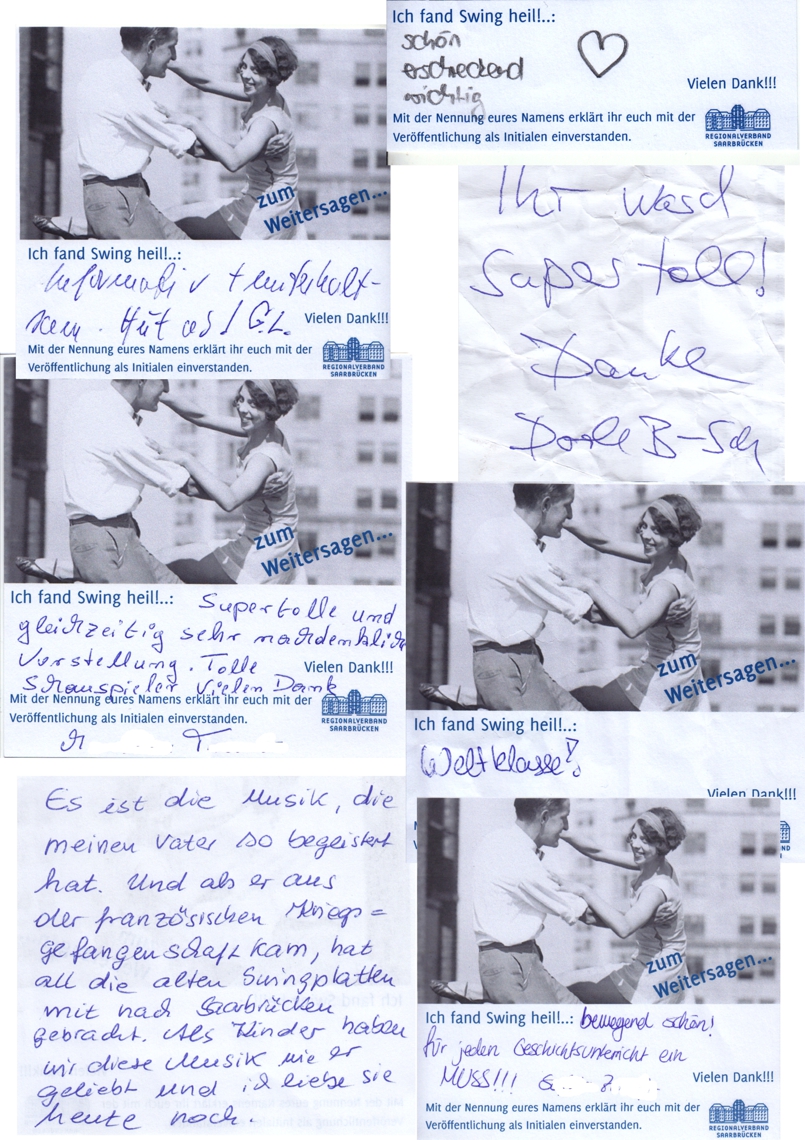 zum
Weitersagen...
Ich fand Swing heil!..:
Informativ + unterhalt-
sam. Hut ab! G.L.
Vielen Dank!!!
Mit der Nennung eures Namens erklärt ihr euch mit der
Veröffentlichung als Initialen einverstanden.
REGIONALVERBAND
SAARBRÜCKEN
Ich fand Swing heil!..:
schön
erschreckend
wichtig
Vielen Dank!!!
Mit der Nennung eures Namens erklärt ihr euch mit der
Veröffentlichung als Initialen einverstanden.
REGIONALVERBAND
SAARBRÜCKEN
Ihr ward
super toll!
Danke
B-Sch
zum
Weitersagen...
Ich fand Swing heil!..: Supertolle und
gleichzeitig sehr nachdenklich
Vorstellung. Tolle
Vielen Dank!!!
Schauspieler Vielen Dank
Mit der Nennung eures Namens erklärt ihr euch mit der
Veröffentlichung als Initialen einverstanden.
REGIONALVERBAND
SAARBRÜCKEN
T.
zum
Weitersagen...
Ich fand Swing heil!..:
Weltklasse!
Vielen Dank!!!
Es ist die Musik, die
meinen Vater so begeistert
hat. Und als er aus
der französischen Kriegs=
gefangenschaft kam, hat
all die alten Swingplatten
mit nach Saarbrücken
gebracht. Als Kinder haben
wir diese Musik wie er
geliebt und ich liebe sie
heute noch.
zum
Weitersagen...
Ich fand Swing heil!..: bewegend schön!
für jeden Geschichtsunterricht ein
MUSS!!!
Vielen Dank!!!
Mit der Nennung eures Namens erklärt ihr euch mit der
Veröffentlichung als Initialen einverstanden.
REGIONALVERBAND
SAARBRÜCKEN